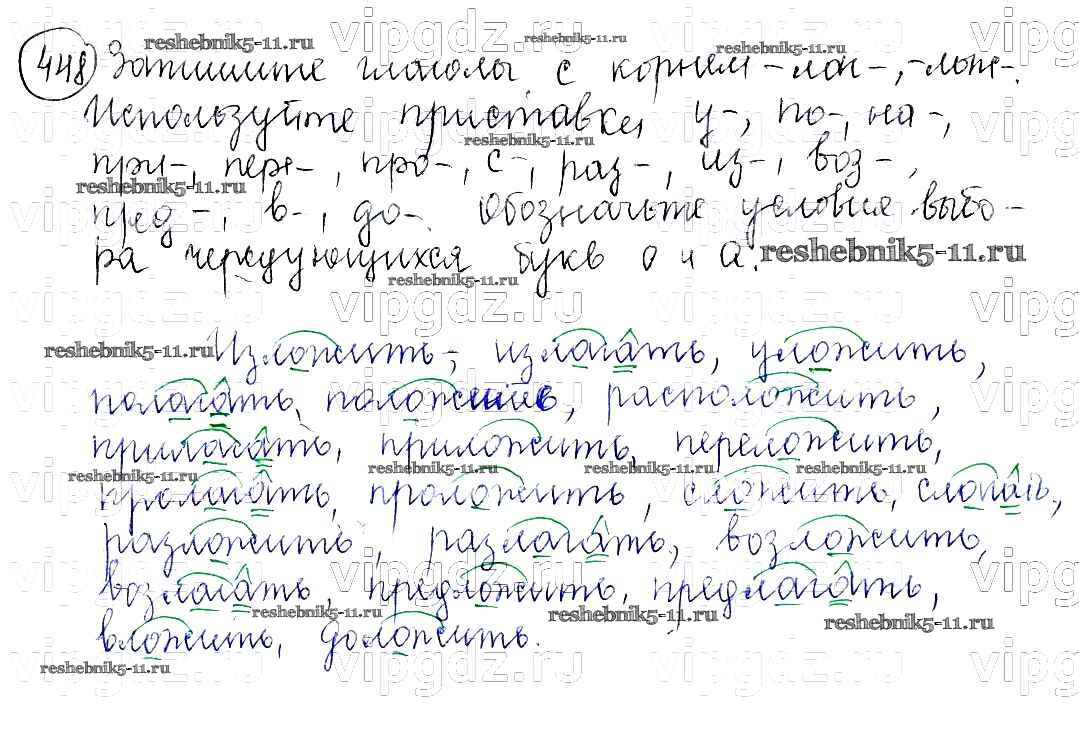 448 Запишите глаголы с корнем -лаг-, -лож-.
Используйте приставки у-, по-, на-,
при-, пере-, про-, с-, раз-, из-, воз-,
пред-, в-, до-. Обозначьте условия выбо-
ра чередующихся букв о и а.
Изложить, излагать, уложить,
полагать, положение, расположить,
прилагать, приложить, переложить,
пролагать, проложить, сложить, слогать,
разложить, разлагать, возложить,
возлагать, предложить, предлагать,
вложить, доложить.
reshebnik5-11.ru
vipgdz.ru